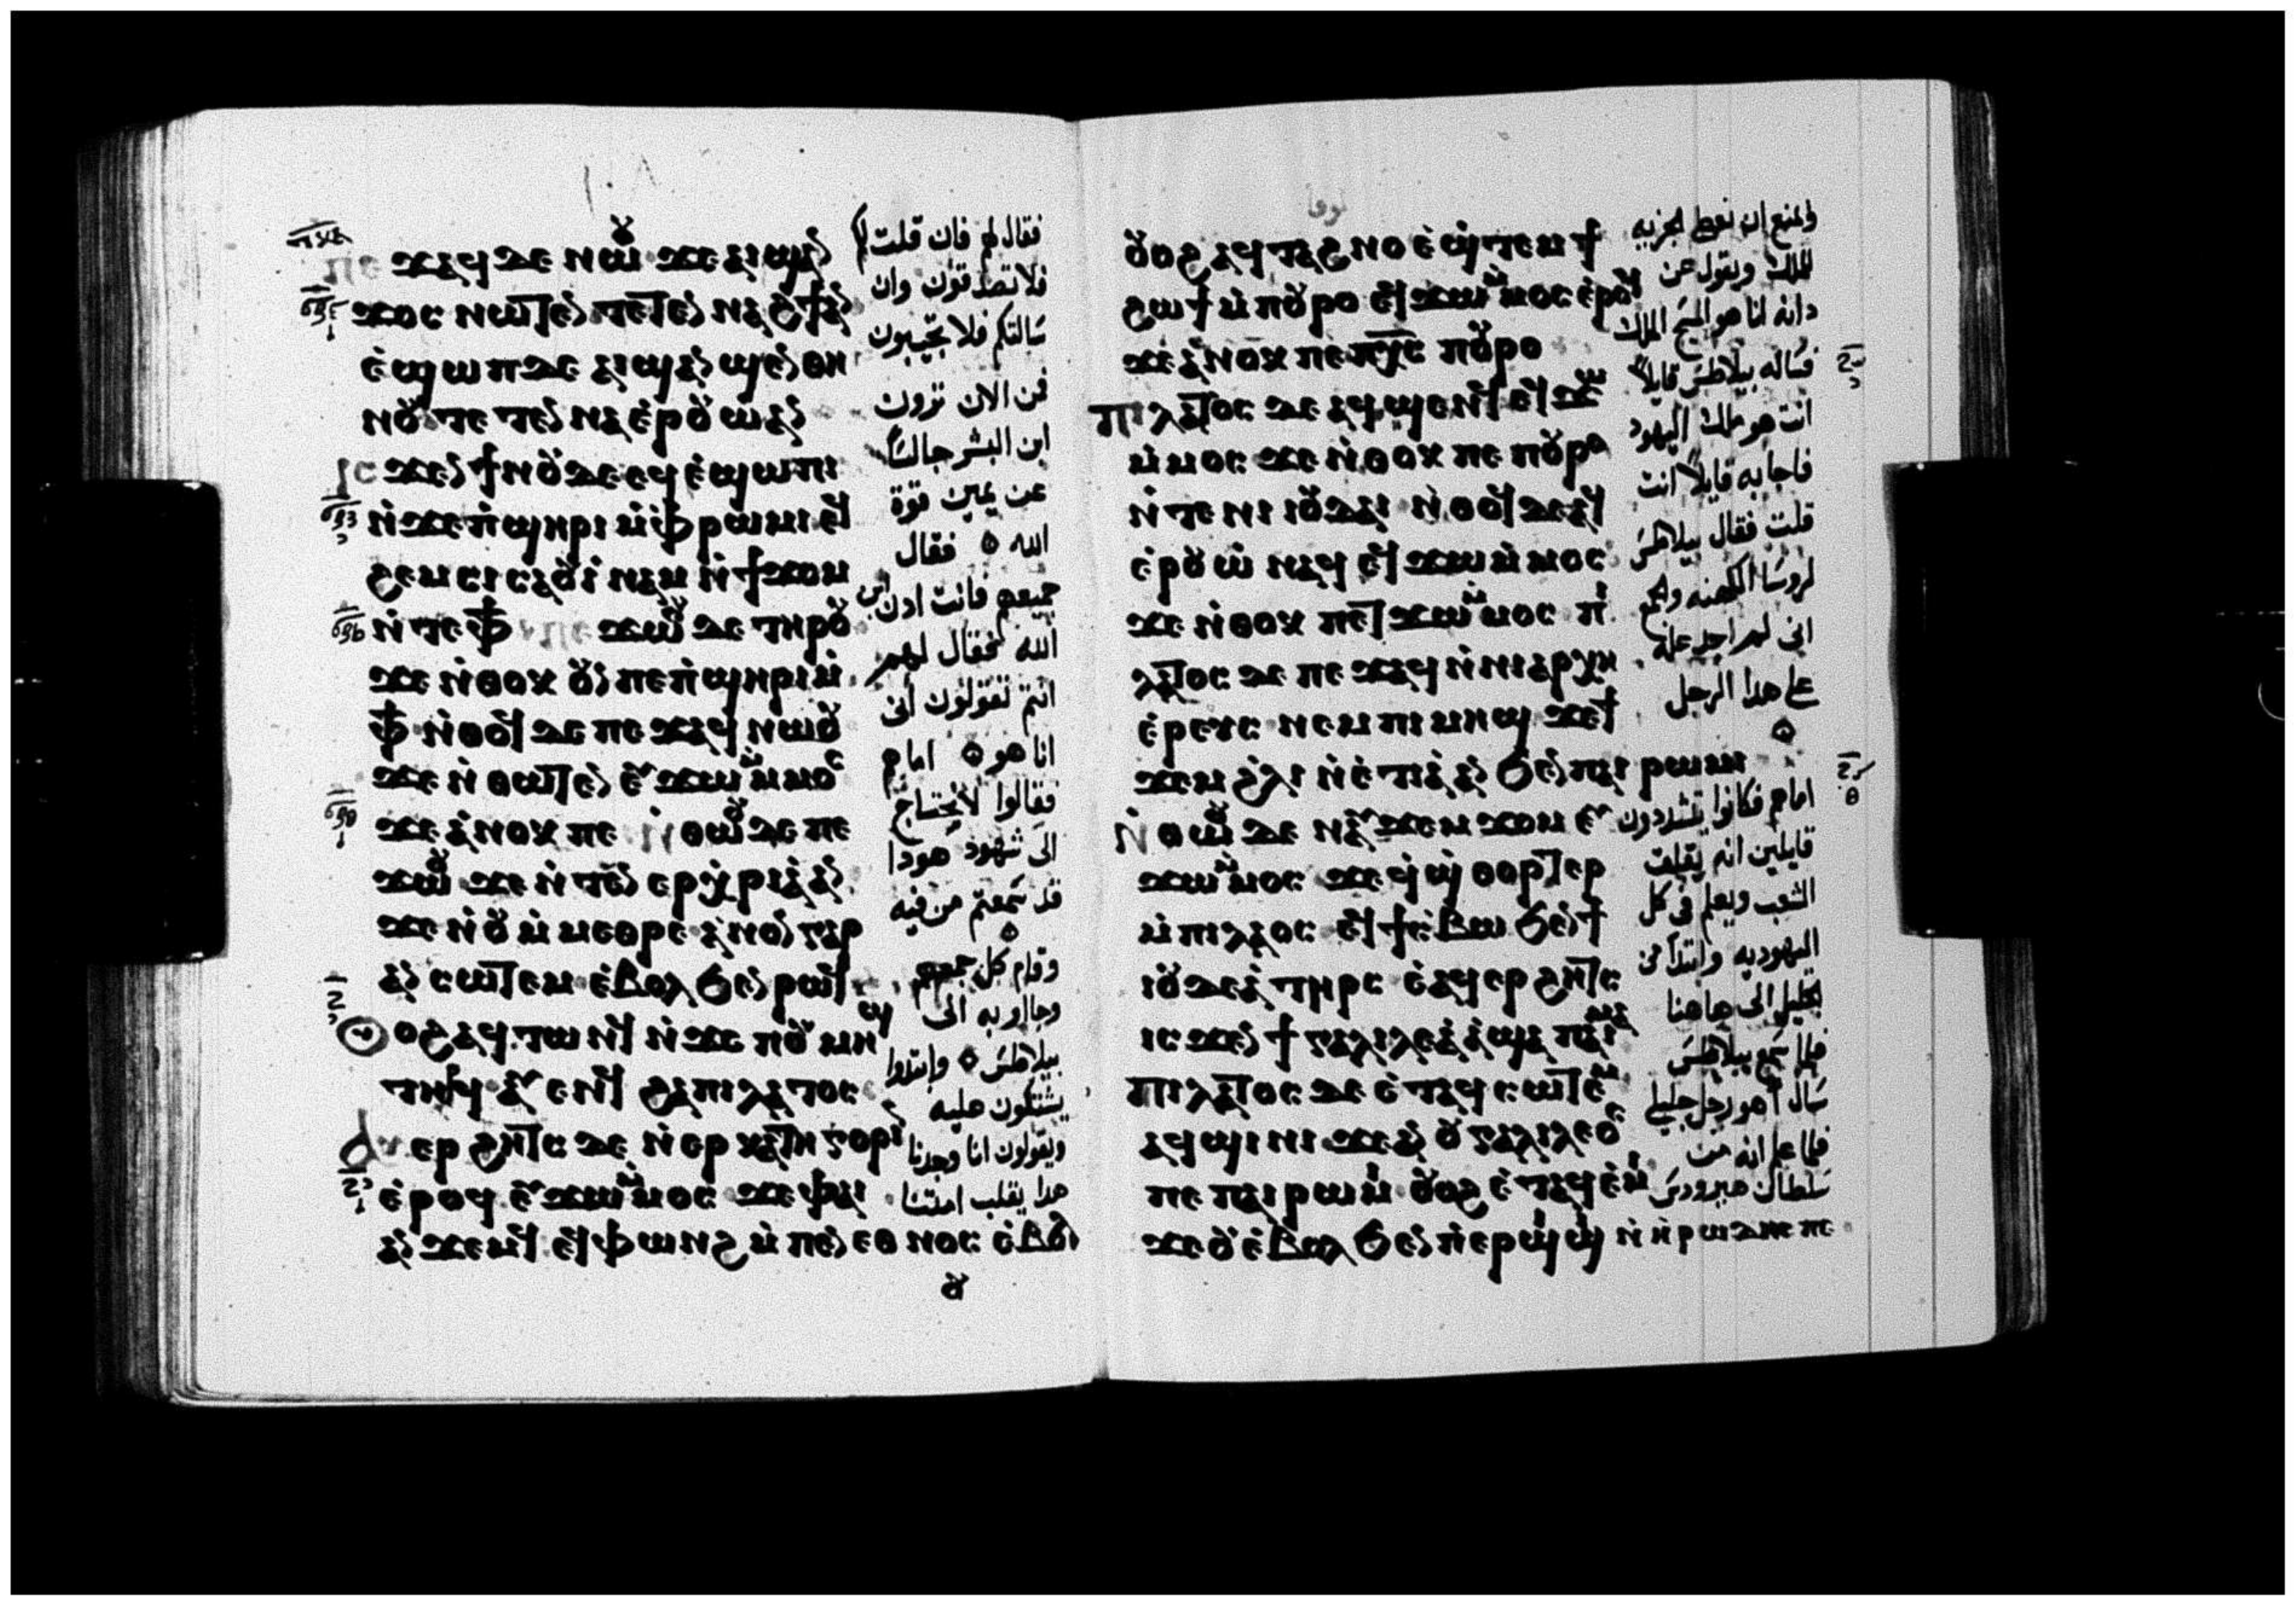 ⲡⲉϫⲁϥ ⲇⲉ ⲛⲱⲟⲩ ϫⲉ ⲁⲓϣⲁⲛ
ϫⲟⲥ ⲛⲱⲧⲉⲛ ⲧⲉⲧⲉⲛⲛⲁϩϯ ⲁⲛ
ⲉ̀ϣⲱⲡ ⲇⲉ ⲁⲓϣⲁⲛϣⲉⲛ ⲑⲏ
ⲛⲟⲩ ⲧⲉⲧⲉⲛⲛⲁⲉ̀ⲣⲟⲩⲱ̀ ⲁⲛ
ⲓⲥϫⲉⲛ ϯⲛⲟⲩ ⲇⲉ ⲉϥⲉ̀ϣⲱⲡⲓ
ⲛ̀ϫⲉ ⲡ̀ϣⲏⲣⲓ ⲙ̀ⲫ̀ⲣⲱⲙⲓ ⲉϥ
ϩⲉⲙⲥⲓ ⲥⲁⲟⲩⲓ̀ⲛⲁⲙ ⲛ̀ϯϫⲟⲙ
ⲛ̀ⲧⲉ ⲫϯ ⲡⲉϫⲱⲟⲩ ⲇⲉ ⲧⲏⲣⲟⲩ
ϫⲉ ⲛ̀ⲑⲟⲕ ⲟⲩⲛ ⲡⲉ ⲡ̀ϣⲏⲣⲓ ⲙ̀
ⲫϯ ⲛ̀ⲑⲟϥ ⲇⲉ ⲡⲉϫⲁϥ ⲛⲱⲟⲩ
ϫⲉ ⲛ̀ⲑⲱⲧⲉⲛ ⲉⲧϫⲱ ⲙ̀ⲙⲟⲥ
ϫⲉ ⲁ̀ⲛⲟⲕ ⲡⲉ ⲛ̀ⲑⲱⲟⲩ ⲇⲉ ⲡⲉ
ϫⲱⲟⲩ ϫⲉ ⲛ̀ⲧⲉⲛ ⲉⲣⲭ̀ⲣⲓⲁ̀ ⲁⲛ
ϫⲉ ⲛ̀ⲟⲩ ⲙ̀ⲙⲉⲑⲣⲉ ⲁ̀ⲛⲟⲛ ⲅⲁⲣ
ⲁⲛⲥⲱⲧⲉⲙ ⲉ̀ⲃⲟⲗϧⲉⲛ ⲣⲱϥ
ⲟⲩⲟϩ ⲁϥⲧⲱⲛϥ ⲛ̀ϫⲉ ⲡⲟⲩⲙⲏϣ
ⲧⲏⲣϥ ⲁⲩⲉⲛϥ ϩⲁ ⲡⲓⲗⲁⲧⲟⲥ
ⲁⲩⲉⲣϩⲏⲧⲥ ⲇⲉ ⲛ̀ⲉⲣⲕⲁⲧⲏⲅⲟⲣⲓⲛ
ⲉ̀ⲣⲟϥ ⲉⲩϫⲱ ⲙ̀ⲙⲟⲥ ϫⲉ ⲫⲁⲓ
ⲁⲛϫⲉⲙϥ ⲉϥⲫⲱⲛϩ ⲙ̀ⲡⲉⲛⲉⲑⲛⲟⲥ ⲉ̀ⲃⲟⲗ
ⲟⲩ
فقال لهم فان قلت
فلا تصدقون وان
سالتكم فلا تجيبون
فمن الان ترون
ابن البشر جالسًا
عن يمين قوة
الله فقال
جميعهم فانت ادن ابن
الله فقال لهم
انتم تقولون انى
انا هو امام
فقالوا لا نحتاج
الى شهود هودا
قد سمعتم من فيه
وقام كل جمعهم
وجاوا به الى
بيلاطس وابتدوا
يشتكون عليه
ويقولون انا وجدنا
هدا يقلب امتنا
ⲟⲩⲟϩ ⲁϥⲧⲁϩⲛⲟ ⲉ̀ϣ̀ⲧⲉⲙϯ
ϩⲱϯ ⲙ̀ⲡⲟⲩⲣⲟ ⲉϥϫⲱ ⲙ̀ⲙⲟⲥ ⲉ̀ⲣⲟϥ
ϫⲉ ⲁ̀ⲛⲟⲕ ⲡⲉ ⲡⲭ̅ⲥ̅ ⲡⲟⲩⲣⲟ
ⲡⲓⲗⲁⲧⲟⲥ ⲇⲉ ⲁϥϣⲉⲛϥ ⲉϥϫⲱ
ⲙ̀ⲙⲟⲥ ϫⲉ ⲛ̀ⲑⲟⲕ ⲡⲉ ⲡⲟⲩⲣⲟ
ⲛ̀ⲧⲉ ⲛⲓⲓⲟⲩⲇⲁⲓ ⲛ̀ⲑⲟϥ ⲇⲉ ⲁϥ
ⲉ̀ⲣⲟⲩⲱ̀ ⲛⲁϥ ⲉϥϫⲱ ⲙ̀ⲙⲟⲥ
ϫⲉ ⲛ̀ⲑⲟⲕ ⲡⲉⲧϫⲱ ⲙ̀ⲙⲟⲥ ⲡⲓ
ⲗⲁⲧⲟⲥ ⲇⲉ ⲡⲉϫⲁϥ ⲛ̀ⲛⲓⲁⲣⲭⲏ
ⲉ̀ⲣⲉⲩⲥ ⲛⲉⲙ ⲡⲓⲙⲏϣ ϫⲉ ϯ
ϫⲉⲙ ϩ̀ⲗⲓ ⲛ̀ⲉ̀ⲧⲓⲁ̀ ⲁⲛ ϧⲉⲛ ⲡⲁⲓⲣⲱⲙⲓ
ⲛ̀ⲑⲱⲟⲩ ⲇⲉ ⲛⲁⲩϫⲉⲙϫⲟⲙ ⲉⲩ
ϫⲱ ⲙ̀ⲙⲟⲥ ϫⲉ ϥ̀ϣ̀ⲑⲟⲣⲧⲉⲣ
ⲙ̀ⲡⲓⲗⲁⲟⲥ ⲉϥϯⲥ̀ⲃⲱ ϧⲉⲛ ϯ
ⲓⲟⲩⲇⲉⲁ̀ ⲧⲏⲣⲥ ⲉ̀ⲁϥⲉⲣϩⲏⲧⲥ
ⲓⲥϫⲉⲛ ϯⲅⲁⲗⲓⲗⲉⲁ̀ ϣⲁ ⲡⲁⲓⲙⲁ
ⲡⲓⲗⲁⲧⲟⲥ ⲇⲉ ⲉ̀ⲧⲁϥⲥⲱⲧⲉⲙ
ⲁϥϣⲓⲛⲓ ϫⲉ ⲁⲛ ⲟⲩⲅⲁⲗⲓⲗⲉⲟⲥ
ⲡⲉ ⲡⲁⲓⲣⲱⲙⲓ ⲟⲩⲟϩ ⲉ̀ⲧⲁϥⲉ̀ⲙⲓ
ϫⲉ ⲟⲩⲉ̀ⲃⲟⲗϧⲉⲛ ⲡ̀ⲉⲣϣⲓϣⲓ ⲛ̀ⲏⲣⲱⲇⲏⲥ ⲡⲉ
لوقا
ويمنع ان نعطى الجزيه
للملك ويقول عن
داته انا هو المسيح الملك
فساله بيلاطس قايلاً
انت هو ملك اليهود
فاجابه قايلاً انت
قلت فقال بيلاطس
لروسا الكهنه والجمع
انى لم اجد عله
على هدا الرجل
امام فكانوا يتشددون
قايلين انه يقلب
الشعب ويعلم فى كل
اليهوديه وابتدا من
الجليل الى هاهنا
فلما سمع بيلاطس
سال اهو رجل جليلي
فلما علم انه من
سلطان هيرودس